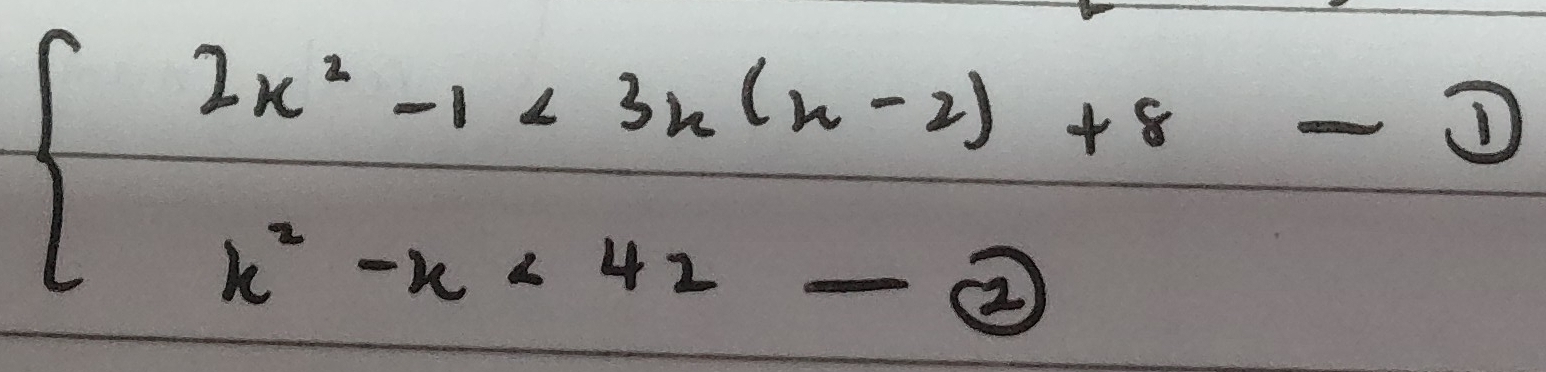 2x² - 1 < 3x(x - 2) + 8 — ①
x² - x < 42 — ②